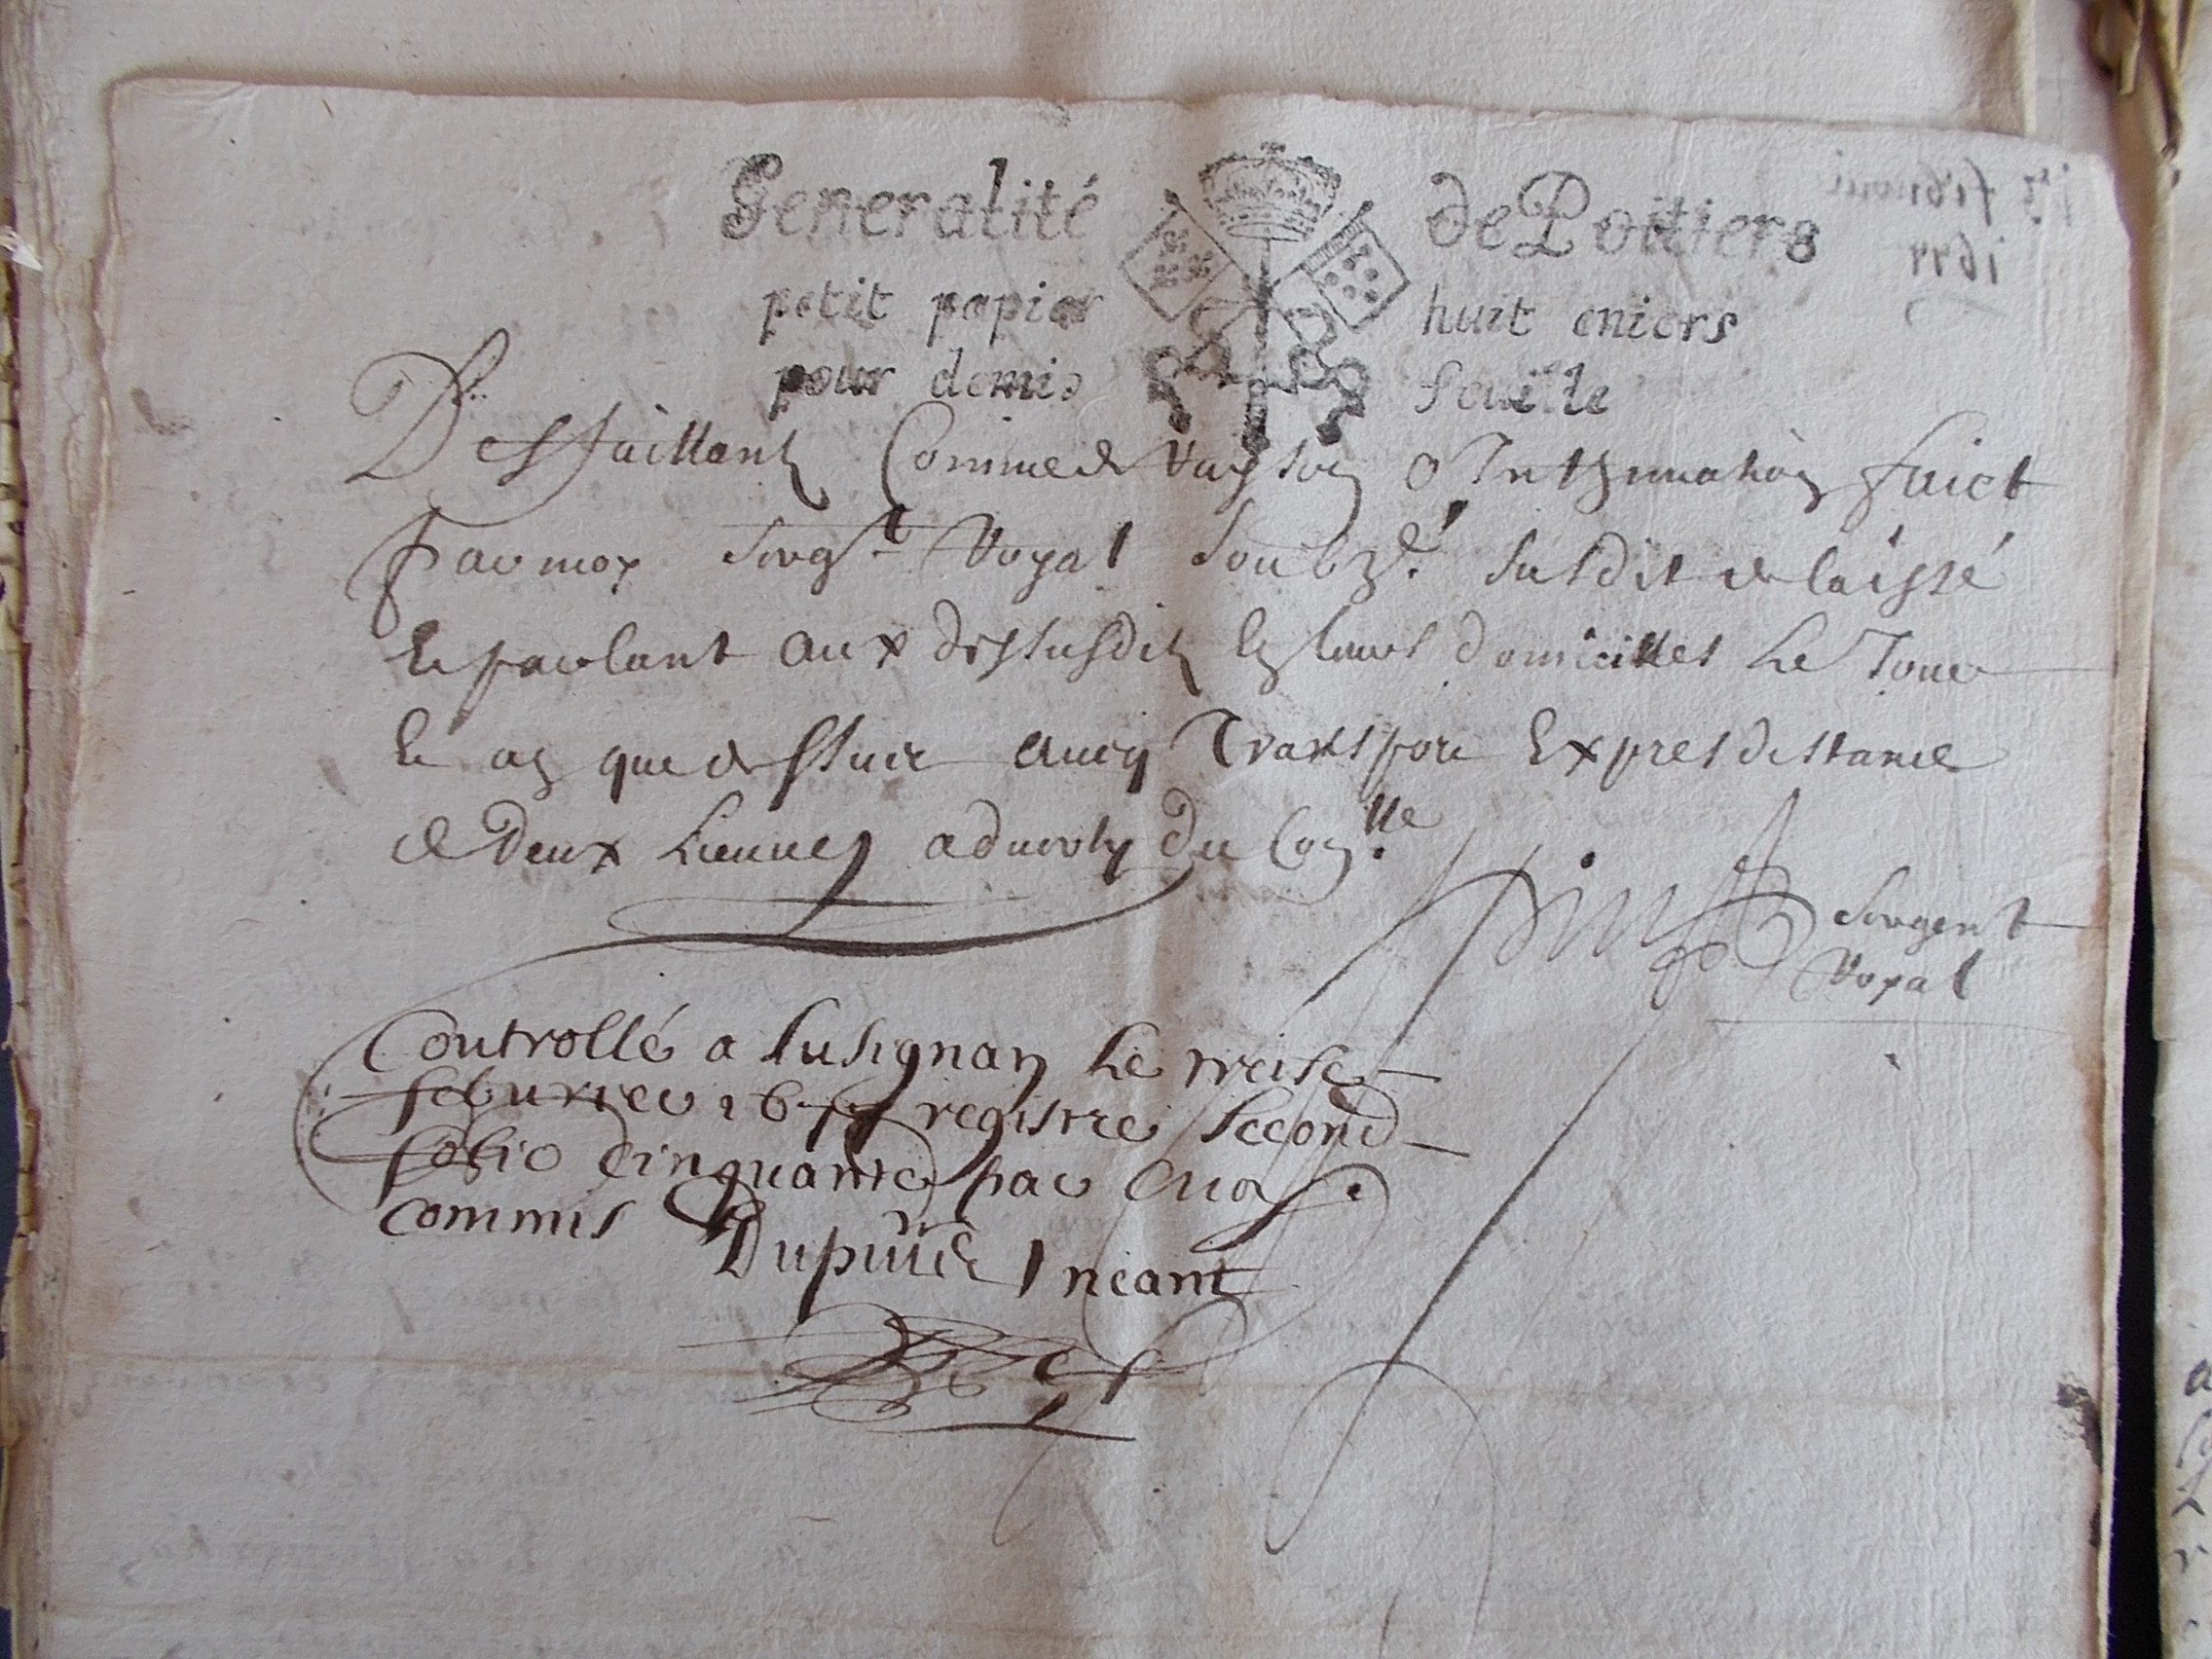 Generalité de Poitiers
petit papier huit eniers
pour demie feuille
Deffaillant Comme de raison Inthimation faict
par moy serg.t royal soubz.é susdit & laissé
En parlant aux dessusditz En leurs domicilles Le Jour
Et an que dessus Transport Expres distance
de Deux Lieues
sergent
royal
Controllé a lusignan Le treise
feburier 1677 registre second
folio cinquante par moy
commis
Dupuis neant